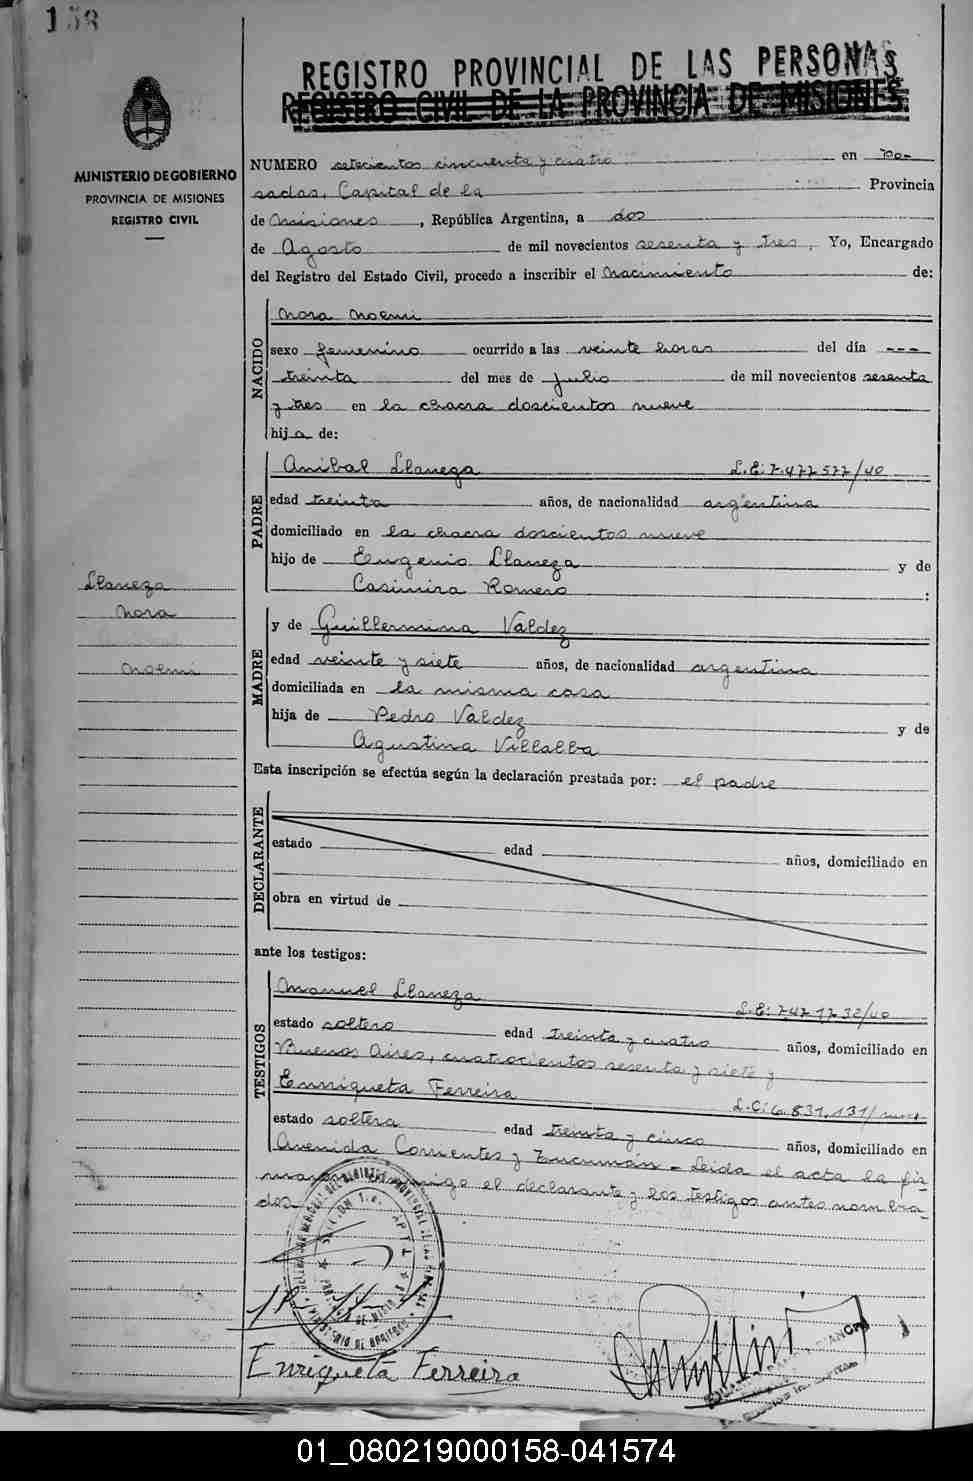 158
MINISTERIO DE GOBIERNO
PROVINCIA DE MISIONES
REGISTRO CIVIL
Llaneza
Nora
Noemi
REGISTRO PROVINCIAL DE LAS PERSONAS
REGISTRO CIVIL DE LA PROVINCIA DE MISIONES
NUMERO setecientos cincuenta y cuatro en Po-
sadas, Capital de la Provincia
de Misiones, República Argentina, a dos
de Agosto de mil novecientos sesenta y tres, Yo, Encargado
del Registro del Estado Civil, procedo a inscribir el Nacimiento de:
NACIDO
Nora Noemi
sexo femenino ocurrido a las veinte horas del día ---
treinta del mes de Julio de mil novecientos sesenta
y tres en la chacra doscientos nueve
hija de:
PADRE
Anibal Llaneza L.E: 7.477.577/40
edad treinta años, de nacionalidad argentina
domiciliado en la chacra doscientos nueve
hijo de Eugenio Llaneza y de
Casimira Romero :
MADRE
y de Guillermina Valdez
edad veinte y siete años, de nacionalidad argentina
domiciliada en la misma casa
hija de Pedro Valdez y de
Agustina Villalba
Esta inscripción se efectúa según la declaración prestada por: el padre
DECLARANTE
estado edad años, domiciliado en
obra en virtud de
ante los testigos:
TESTIGOS
Manuel Llaneza L.E:
estado soltero edad treinta y cuatro años, domiciliado en
Buenos Aires, cuatrocientos sesenta y siete y
Enriqueta Ferreira L.C: 6.831.131/
estado soltera edad treinta y cinco años, domiciliado en
Avenida Corrientes y Tucumán - Leida el acta la fir-
man conmigo el declarante y los testigos antes nombra-
dos
Enriqueta Ferreira
01_080219000158-041574